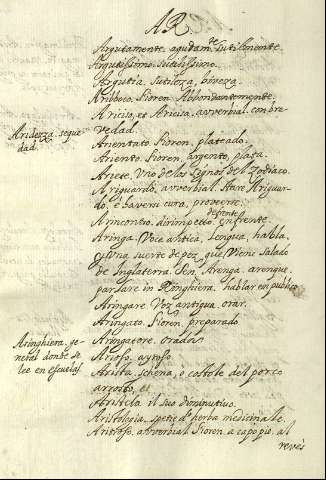 AR
Argutamente. agudam.te sutilmente.
Argutissimo. sutilissimo.
Argutia. Sutileza, viveza.
Aribbocco, Fioren. Abbondantemente.
A riciso, et A ricisa, avverbial. con bre-
vedad.
Aridezza, seque-
dad.
Arientato. Fioren. plateado.
Ariento. Fioren. argento, plata.
Ariete, Uno de los signos del Zodiaco.
A riguardo, avverbial. Stare A riguar-
do, è haver cura, proverbi:
Arincontro. dirimpetto. enfrente.
defrente
Aringa. Voce antica, Lengua, habla,
y Una suerte de pez, que Viene salado
de Inglaterra. Ien. Arenga, arenque,
parlare in Ringhiera, hablar en publico
Aringare. Voz antigua. orar.
Aringato. Fioren. preparado
Aringatore. orador
Aringhiera, ge-
neral donde se
lee en escuelas.
Arioso. ayroso.
Arista, schena, o costole del porco
arrosto, et
Aristela, il suo diminutivo.
Aristologia. spetie d'herba medicinale.
Aritroso. avverbial. Fioren. a capo piè, al
revés